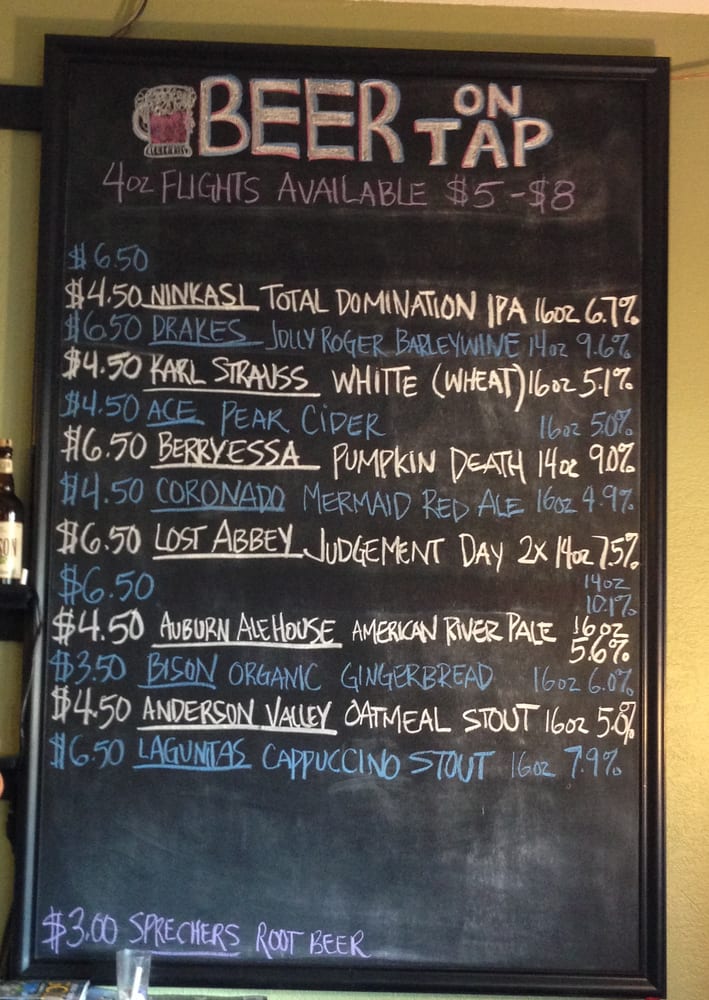 BEER ON TAP
4oz FLIGHTS AVAILABLE $5-$8
$6.50
$4.50 NINKASI TOTAL DOMINATION IPA 16oz 6.7%
$6.50 DRAKES JOLLY ROGER BARLEYWINE 14oz 9.6%
$4.50 KARL STRAUSS WHITTE (WHEAT) 16oz 5.1%
$4.50 ACE PEAR CIDER 16oz 5.0%
$6.50 BERRYESSA PUMPKIN DEATH 14oz 9.0%
$4.50 CORONADO MERMAID RED ALE 16oz 4.9%
$6.50 LOST ABBEY JUDGEMENT DAY 2X 14oz 7.5%
$6.50 14oz 10.1%
$4.50 AUBURN ALEHOUSE AMERICAN RIVER PALE 16oz 5.6%
$3.50 BISON ORGANIC GINGERBREAD 16oz 6.0%
$4.50 ANDERSON VALLEY OATMEAL STOUT 16oz 5.8%
$6.50 LAGUNITAS CAPPUCCINO STOUT 16oz 7.9%
$3.00 SPRECHERS ROOT BEER